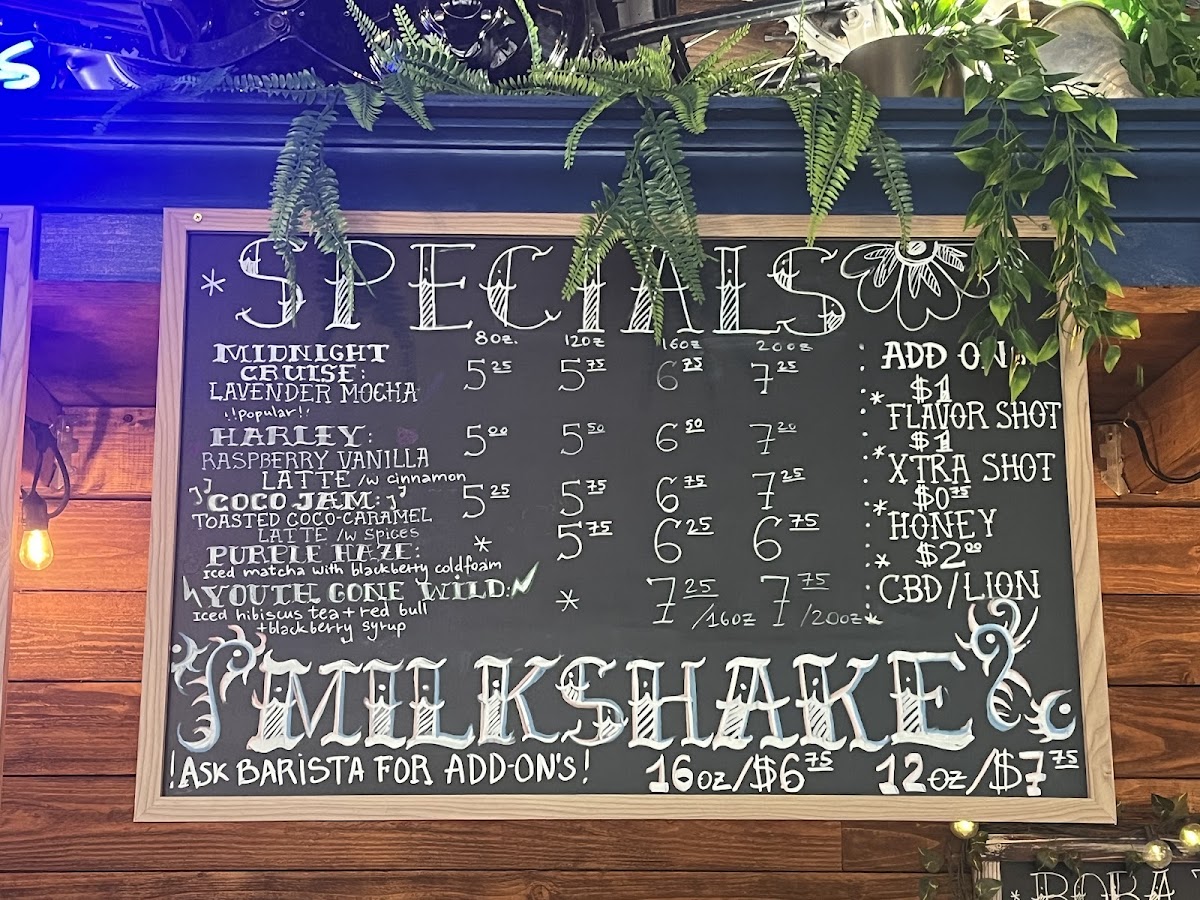 * SPECIALS
8oz. 12oz 16oz 20oz
MIDNIGHT
CRUISE: 5.25 5.75 6.75 7.25
LAVENDER MOCHA
!!Popular!!
HARLEY: 5.00 5.50 6.50 7.20
RASPBERRY VANILLA
LATTE /w cinnamon
COCO JAM: 5.25 5.75 6.75 7.25
TOASTED COCO-CARAMEL
LATTE /w spices
PURPLE HAZE: * 5.75 6.25 6.75
Iced matcha with blackberry coldfoam
YOUTH GONE WILD: * 7.25/16oz 7.75/20oz*
Iced hibiscus tea + red bull
+blackberry syrup
ADD ONS
$1
* FLAVOR SHOT
$1
* XTRA SHOT
$0.75
* HONEY
$2.00
* CBD/LION
MILKSHAKE
!ASK BARISTA FOR ADD-ON'S! 16oz/$6.75 12oz/$7.75
* BOBA